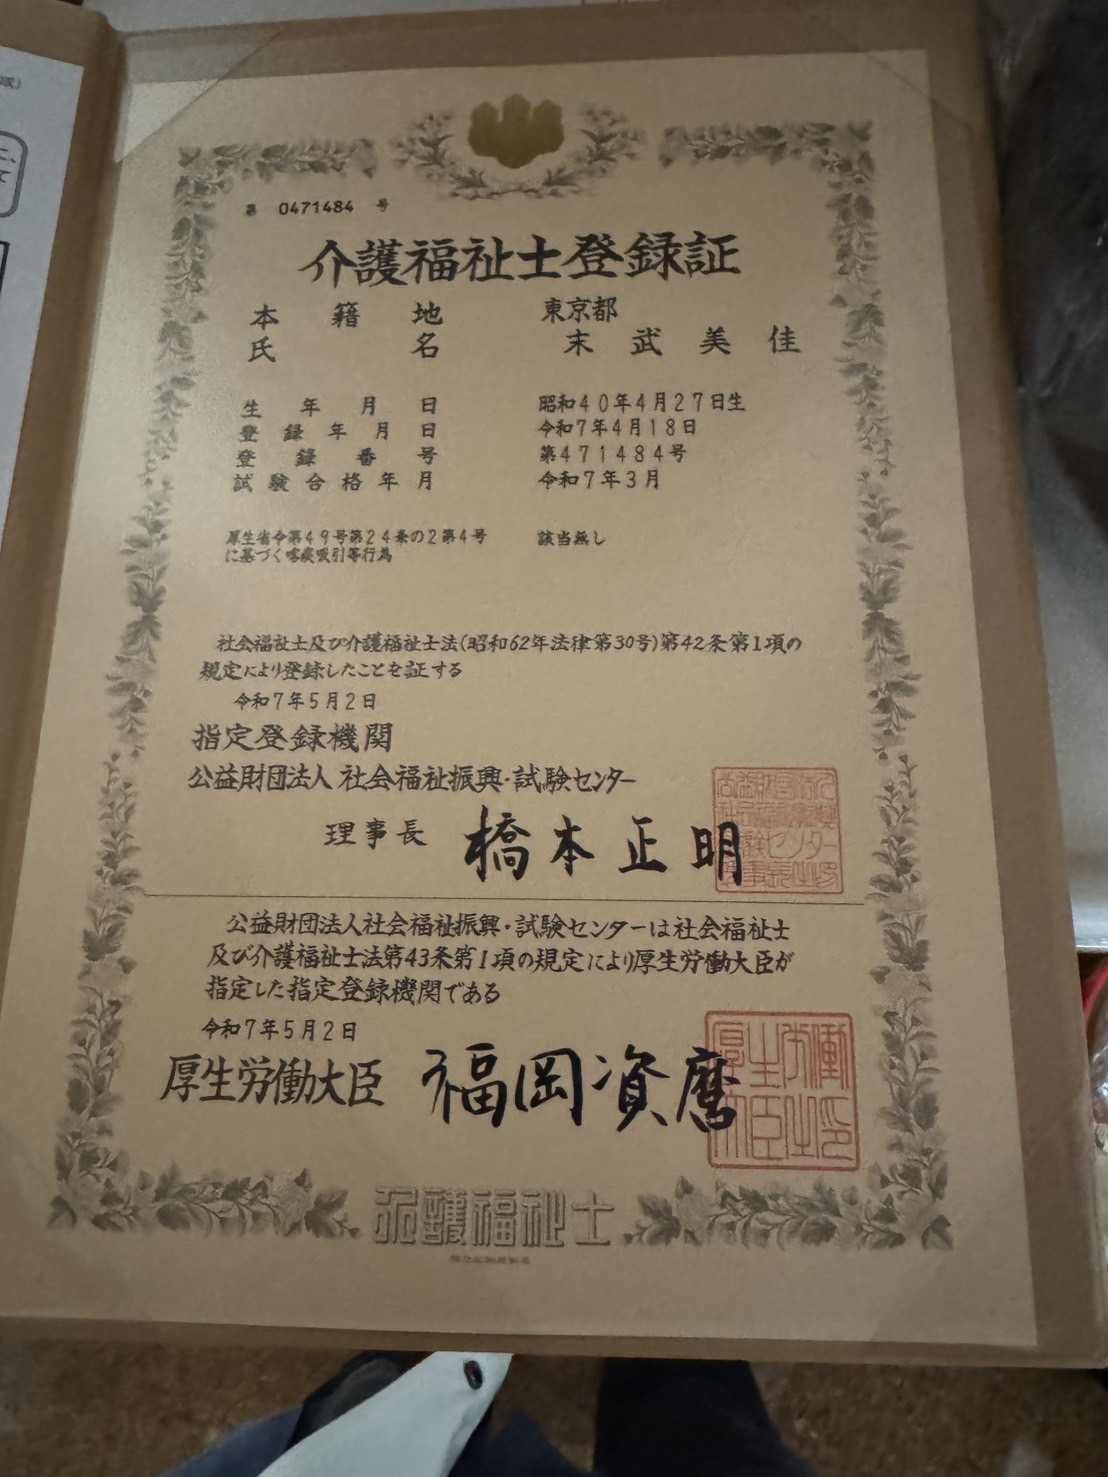 第 0471484 号
介護福祉士登録証
本籍地 東京都
氏名 末武美佳
生年月日 昭和40年4月27日生
登録年月日 令和7年4月18日
登録番号 第471484号
試験合格年月 令和7年3月
厚生省令第49号第24条の2第4号 該当無し
に基づく喀痰吸引等行為
社会福祉士及び介護福祉士法(昭和62年法律第30号)第42条第1項の
規定により登録したことを証する
令和7年5月2日
指定登録機関
公益財団法人 社会福祉振興・試験センター
理事長 橋本正明
公益財団法人社会福祉振興・試験センターは社会福祉士
及び介護福祉士法第43条第1項の規定により厚生労働大臣が
指定した指定登録機関である
令和7年5月2日
厚生労働大臣 福岡資麿
介護福祉士